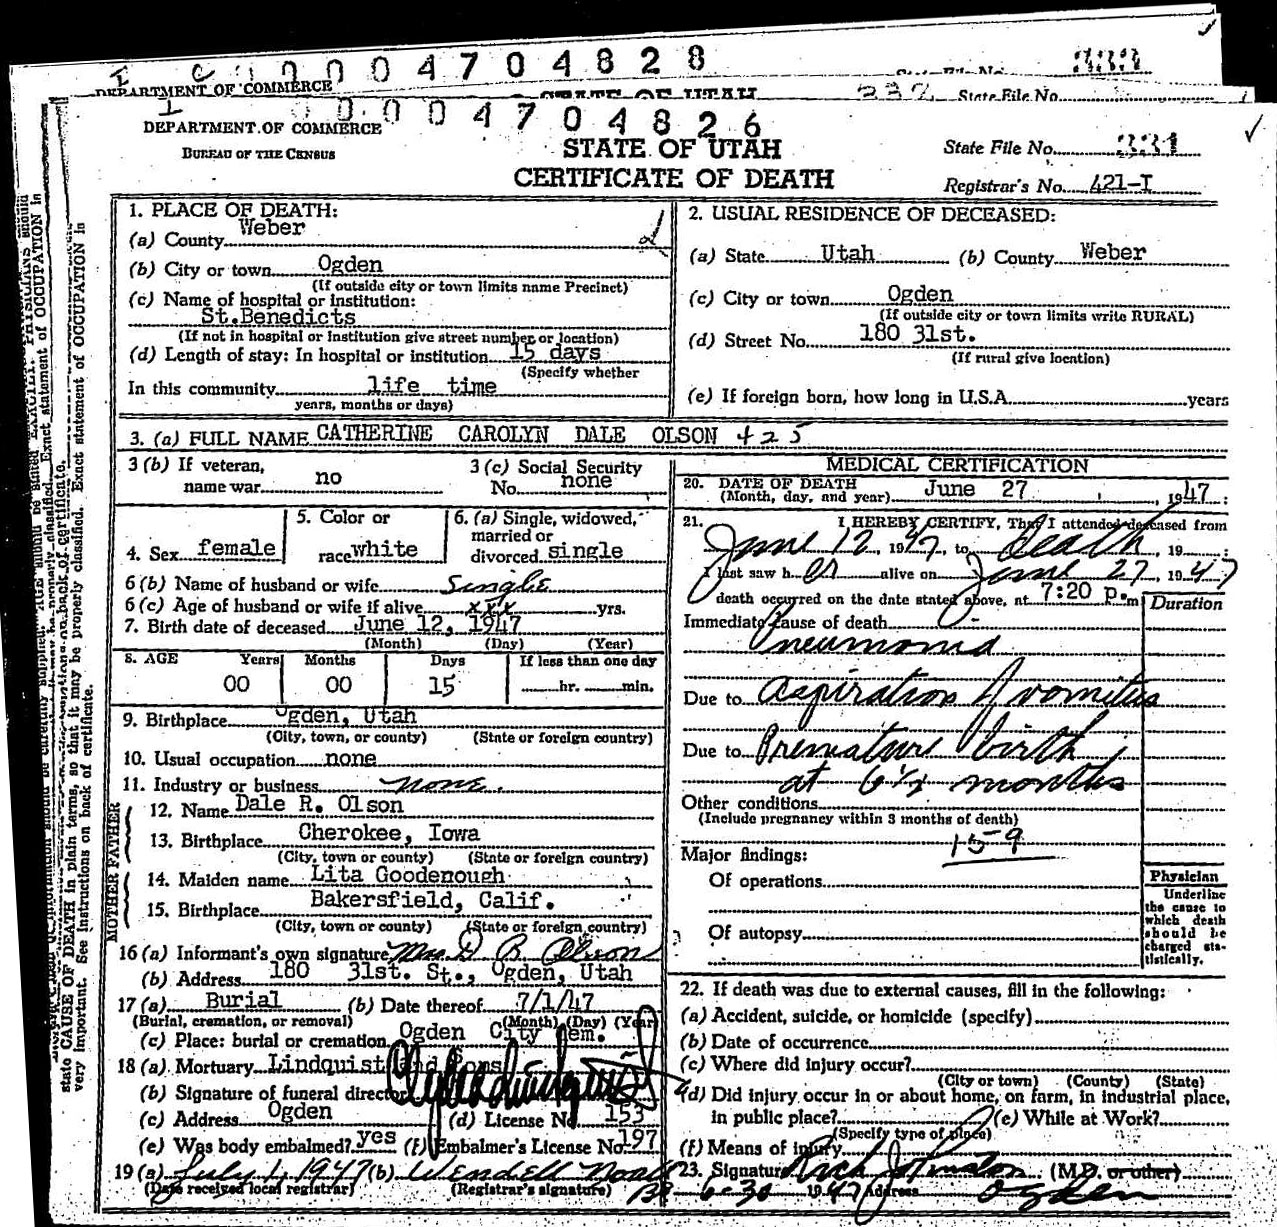 0004704828
DEPARTMENT OF COMMERCE
STATE OF UTAH
State File No. 333
332 State File No.
0004704826
DEPARTMENT OF COMMERCE
BUREAU OF THE CENSUS
STATE OF UTAH
CERTIFICATE OF DEATH
State File No. 331
Registrar's No. 421-I
1. PLACE OF DEATH:
(a) County Weber
(b) City or town Ogden
(If outside city or town limits name Precinct)
(c) Name of hospital or institution:
St.Benedicts
(If not in hospital or institution give street number or location)
(d) Length of stay: In hospital or institution 15 days
(Specify whether
In this community life time
years, months or days)
2. USUAL RESIDENCE OF DECEASED:
(a) State Utah (b) County Weber
(c) City or town Ogden
(If outside city or town limits write RURAL)
(d) Street No. 180 31st.
(If rural give location)
(e) If foreign born, how long in U.S.A. years
3. (a) FULL NAME CATHERINE CAROLYN DALE OLSON 425
3 (b) If veteran, name war no
3 (c) Social Security No. none
4. Sex female
5. Color or race white
6. (a) Single, widowed, married or divorced single
6 (b) Name of husband or wife Single
6 (c) Age of husband or wife if alive xxx yrs.
7. Birth date of deceased June 12, 1947
(Month) (Day) (Year)
8. AGE Years Months Days If less than one day
00 00 15 hr. min.
9. Birthplace Ogden, Utah
(City, town, or county) (State or foreign country)
10. Usual occupation none
11. Industry or business none.
FATHER
12. Name Dale R. Olson
13. Birthplace Cherokee, Iowa
(City, town or county) (State or foreign country)
MOTHER
14. Maiden name Lita Goodenough
15. Birthplace Bakersfield, Calif.
(City, town or county) (State or foreign country)
16 (a) Informant's own signature Mrs. D R Olson
(b) Address 180 31st. St., Ogden, Utah
17 (a) Burial (b) Date thereof 7/1/47
(Burial, cremation, or removal) (Month) (Day) (Year)
(c) Place: burial or cremation Ogden City Cem.
18 (a) Mortuary Lindquist and Sons
(b) Signature of funeral director
(c) Address Ogden (d) License No. 153
(e) Was body embalmed? yes (f) Embalmer's License No. 197
19 (a) July 1, 1947 (b) Wendell Noall
(Date received local registrar) (Registrar's signature)
MEDICAL CERTIFICATION
20. DATE OF DEATH
(Month, day, and year) June 27, 1947
21. I HEREBY CERTIFY, That I attended deceased from
June 12, 1947, to death, 19
I last saw her alive on June 27, 1947
death occurred on the date stated above, at 7:20 p.m
Duration
Immediate cause of death
Pneumonia
Due to Aspiration of vomitus
Due to Premature birth
at 6½ months
Other conditions
(Include pregnancy within 3 months of death)
159
Major findings:
Of operations
Of autopsy
Physician
Underline the cause to which death should be charged statistically.
22. If death was due to external causes, fill in the following:
(a) Accident, suicide, or homicide (specify)
(b) Date of occurrence
(c) Where did injury occur?
(City or town) (County) (State)
(d) Did injury occur in or about home, on farm, in industrial place,
in public place? (e) While at Work?
(Specify type of place)
(f) Means of injury
23. Signature Rich Johnston (M.D. or other)
6-30 1947 Address Ogden
state CAUSE OF DEATH in plain terms, so that it may be properly classified. Exact statement of OCCUPATION is
very important. See instructions on back of certificate.